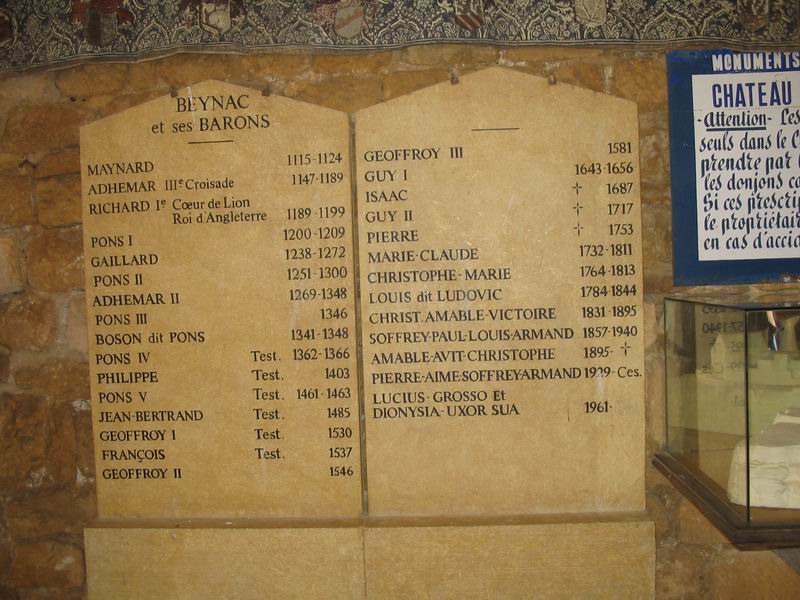 BEYNAC
et ses BARONS
MAYNARD 1115-1124
ADHEMAR IIIe Croisade 1147-1189
RICHARD Ie Cœur de Lion
Roi d'Angleterre 1189-1199
PONS I 1200-1209
GAILLARD 1238-1272
PONS II 1251-1300
ADHEMAR II 1269-1348
PONS III 1346
BOSON dit PONS 1341-1348
PONS IV Test. 1362-1366
PHILIPPE Test. 1403
PONS V Test. 1461-1463
JEAN-BERTRAND Test. 1485
GEOFFROY I Test. 1530
FRANÇOIS Test. 1537
GEOFFROY II 1546
GEOFFROY III 1581
GUY I 1643-1656
ISAAC † 1687
GUY II † 1717
PIERRE † 1753
MARIE-CLAUDE 1732-1811
CHRISTOPHE-MARIE 1764-1813
LOUIS dit LUDOVIC 1784-1844
CHRIST. AMABLE-VICTOIRE 1831-1895
SOFFREY-PAUL-LOUIS-ARMAND 1857-1940
AMABLE-AVIT-CHRISTOPHE 1895- †
PIERRE-AIME-SOFFREY-ARMAND 1929-Ces.
LUCIUS-GROSSO Et
DIONYSIA-UXOR SUA 1961-
MONUMENTS
CHATEAU
-Attention- Les
seuls dans le
prendre par
les donjons
Si ces
le
en cas